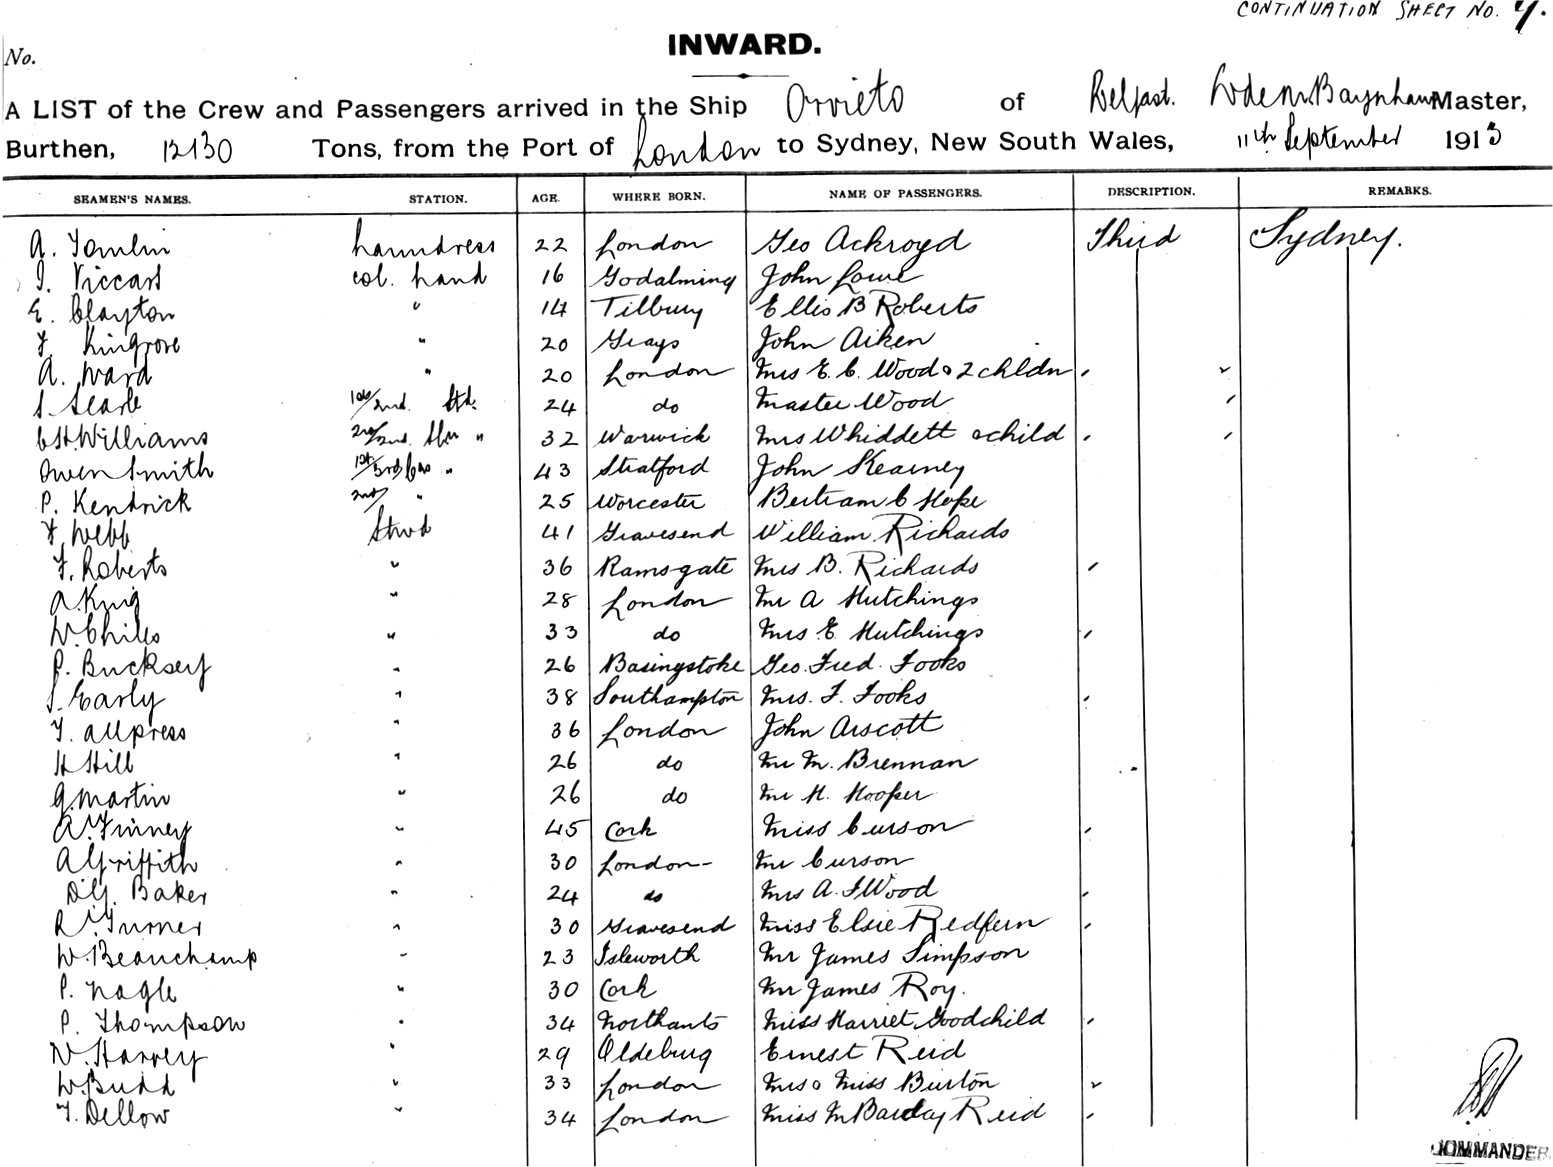 CONTINUATION SHEET NO. 7.
No.
INWARD.
A LIST of the Crew and Passengers arrived in the Ship Orvieto of Belfast. Master,
Burthen, 12130 Tons, from the Port of London to Sydney, New South Wales, 11th September 1913
SEAMEN'S NAMES. STATION. AGE. WHERE BORN. NAME OF PASSENGERS. DESCRIPTION. REMARKS.
A. Tomlin Laundress 22 London Geo Ackroyd Third Sydney.
J. Viccars col. hand 16 Godalming John Lowe
E. Clayton " 14 Tilbury Ellis B Roberts
F. Kingrove " 20 Grays John Aiken
A. Ward " 20 London Mrs E. C. Wood & 2 chldn " "
S. Searle 1st/2nd. Std. 24 do Master Wood "
C H Williams 2nd/2nd. " 32 Warwick Mrs Whiddett & child " "
Owen Smith 1st/3rd " 43 Stratford John Kearney
P. Kendrick 2nd/ " 25 Worcester Bertram C Hope
F. Webb Stwd 41 Gravesend William Richards
F. Roberts " 36 Ramsgate Mrs B. Richards "
A. King " 28 London Mr A Hutchings
W. Chiles " 33 do Mrs E. Hutchings "
P. Bucksey " 26 Basingstoke Geo. Fred. Fooks
S. Early " 38 Southampton Mrs. F. Fooks "
F. Allpress " 36 London John Arscott
H Hill " 26 do Mr M. Brennan
G. Martin " 26 do Mr H. Hooper
A. Finney " 45 Cork Miss Curson "
A Griffith " 30 London Mr Curson
D. G. Baker " 24 do Mrs A. J Wood "
R. Turner " 30 Gravesend Miss Elsie Redfern "
W. Beauchamp " 23 Isleworth Mr James Simpson
P. Nagle " 30 Cork Mr James Roy.
P. Thompson " 34 Northants Miss Harriet Goodchild "
N. Harvey " 29 Oldeburg Ernest Reid
W. Budd " 33 London Mrs & Miss Burton "
F. Dellow " 34 London Miss M Barclay Reid "
COMMANDER